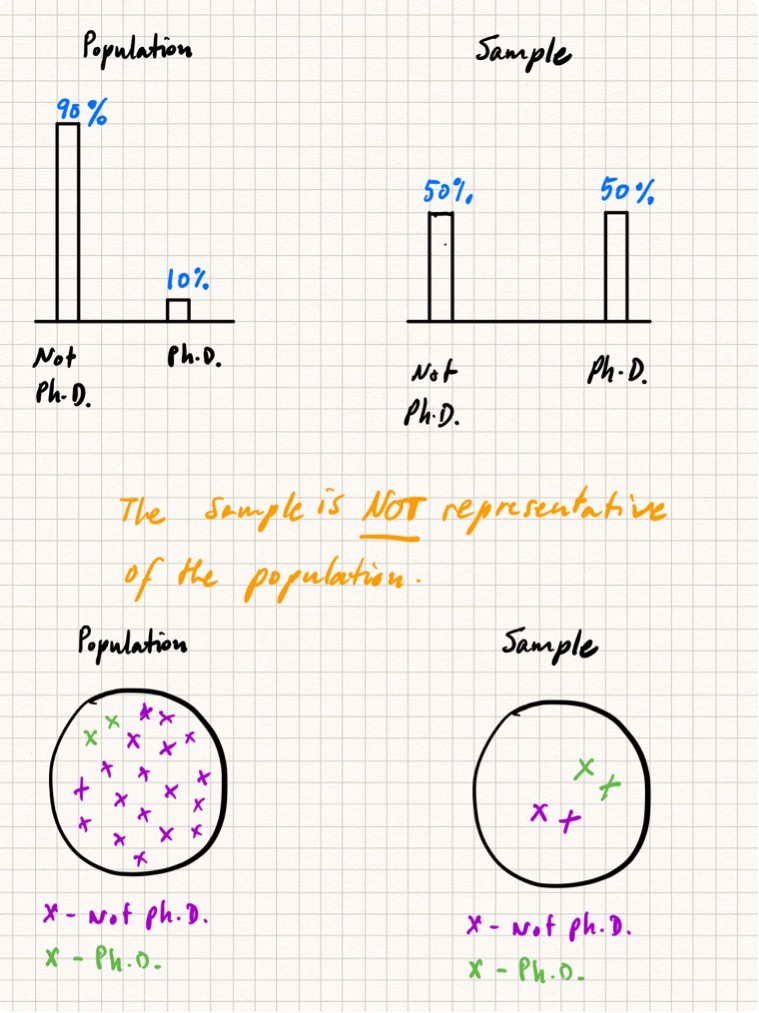 Population
Sample
90%
10%
Not
Ph.D.
Ph.D.
50%
50%
Not
Ph.D.
Ph.D.
The sample is NOT representative
of the population.
Population
Sample
x - Not Ph.D.
x - Ph.D.
x - Not Ph.D.
x - Ph.D.